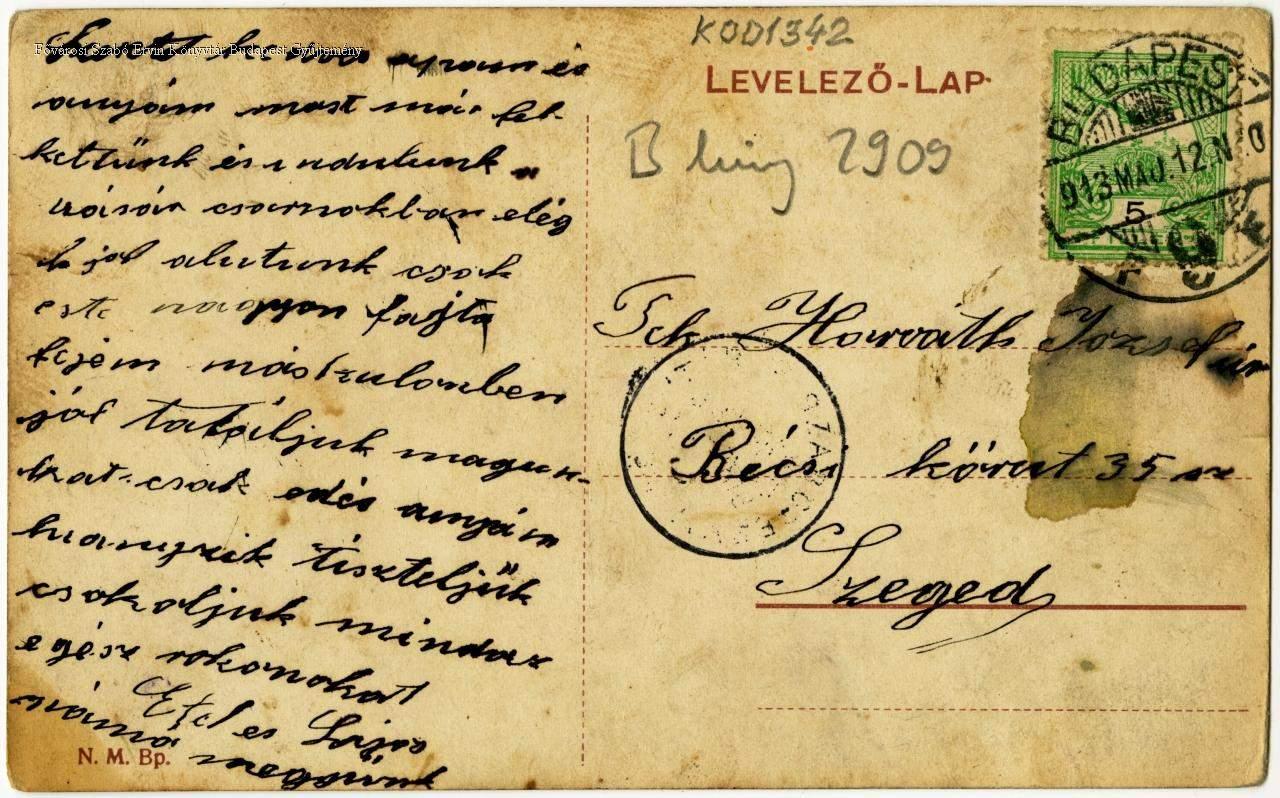 Fővárosi Szabó Ervin Könyvtár Budapest Gyűjtemény
KOD1342
LEVELEZŐ-LAP
B 1909
BUDAPEST
913 MÁJ. 12. N 0
5
kedves apám és
anyám most már fel
keltünk és indulunk a
vásár csarnokban elég
jól alutunk csak
este nagyon fájt a
fejem más külomben
jól találjuk magun-
kat csak edés anyám
hianyzik tiszteljük
csokoljuk mindaz
egész rokonokat
Etel es Lajos
N. M. Bp.
Tek Horváth József úr
Bécsi körut 35 sz
Szeged